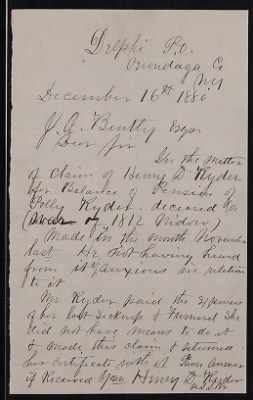 Delphi P.O.
Onondaga Co
NY
December 16th 1881
J. A. Bently Esqr
Dear Sir
In the matter
of Claim of Henry D Ryder
for Balance of Pension of
Polly Ryder deceased
(War of 1812 Widow)
Made in the month November
last He not having heard
from it anxious in relation
to it
Mr Ryder paid the Expenses
of her last Sickness & Funeral She
did not have means to do it
& made this claim & returned
her Certificate with it Please Answer
if Received Yours Henry D. Ryder